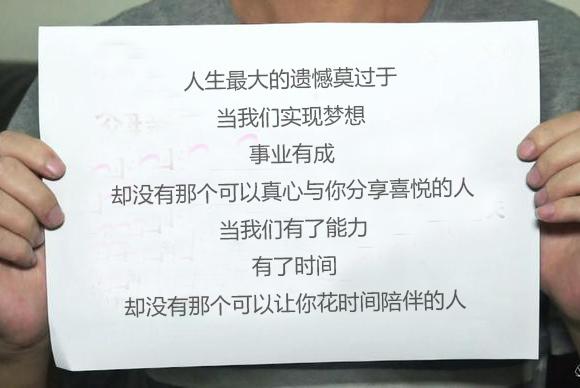 人生最大的遗憾莫过于
当我们实现梦想
事业有成
却没有那个可以真心与你分享喜悦的人
当我们有了能力
有了时间
却没有那个可以让你花时间陪伴的人